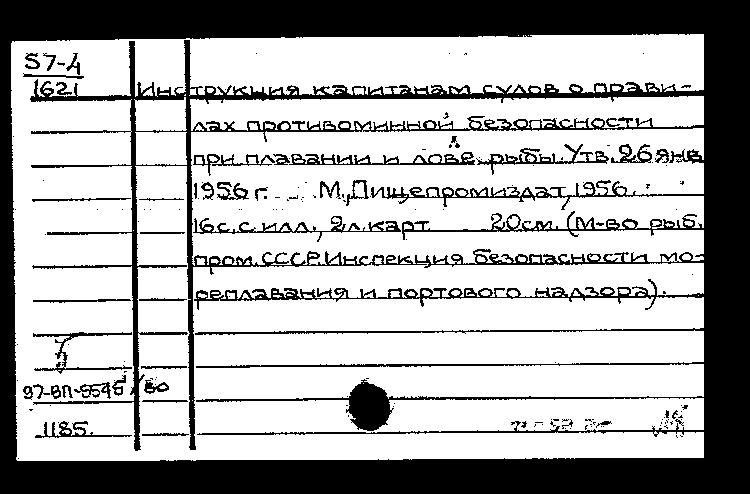 57-4
1621 Инструкция капитанам судов о прави-
лах противоминной безопасности
при плавании и лове рыбы. Утв. 26 янв.
1956 г. М., Пищепромиздат, 1956.
16 с. с илл., 2 л. карт. 20 см. (М-во рыб.
пром. СССР. Инспекция безопасности мо-
реплавания и портового надзора).
1185.